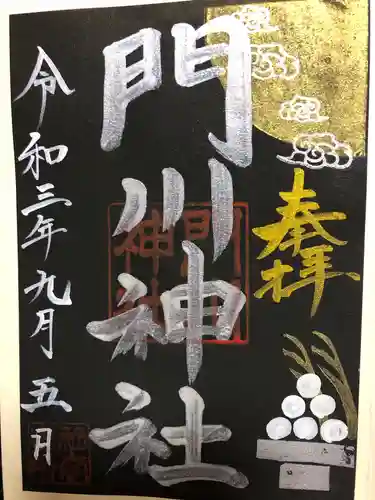 奉拝
門川神社
令和三年九月五月
門川
神社